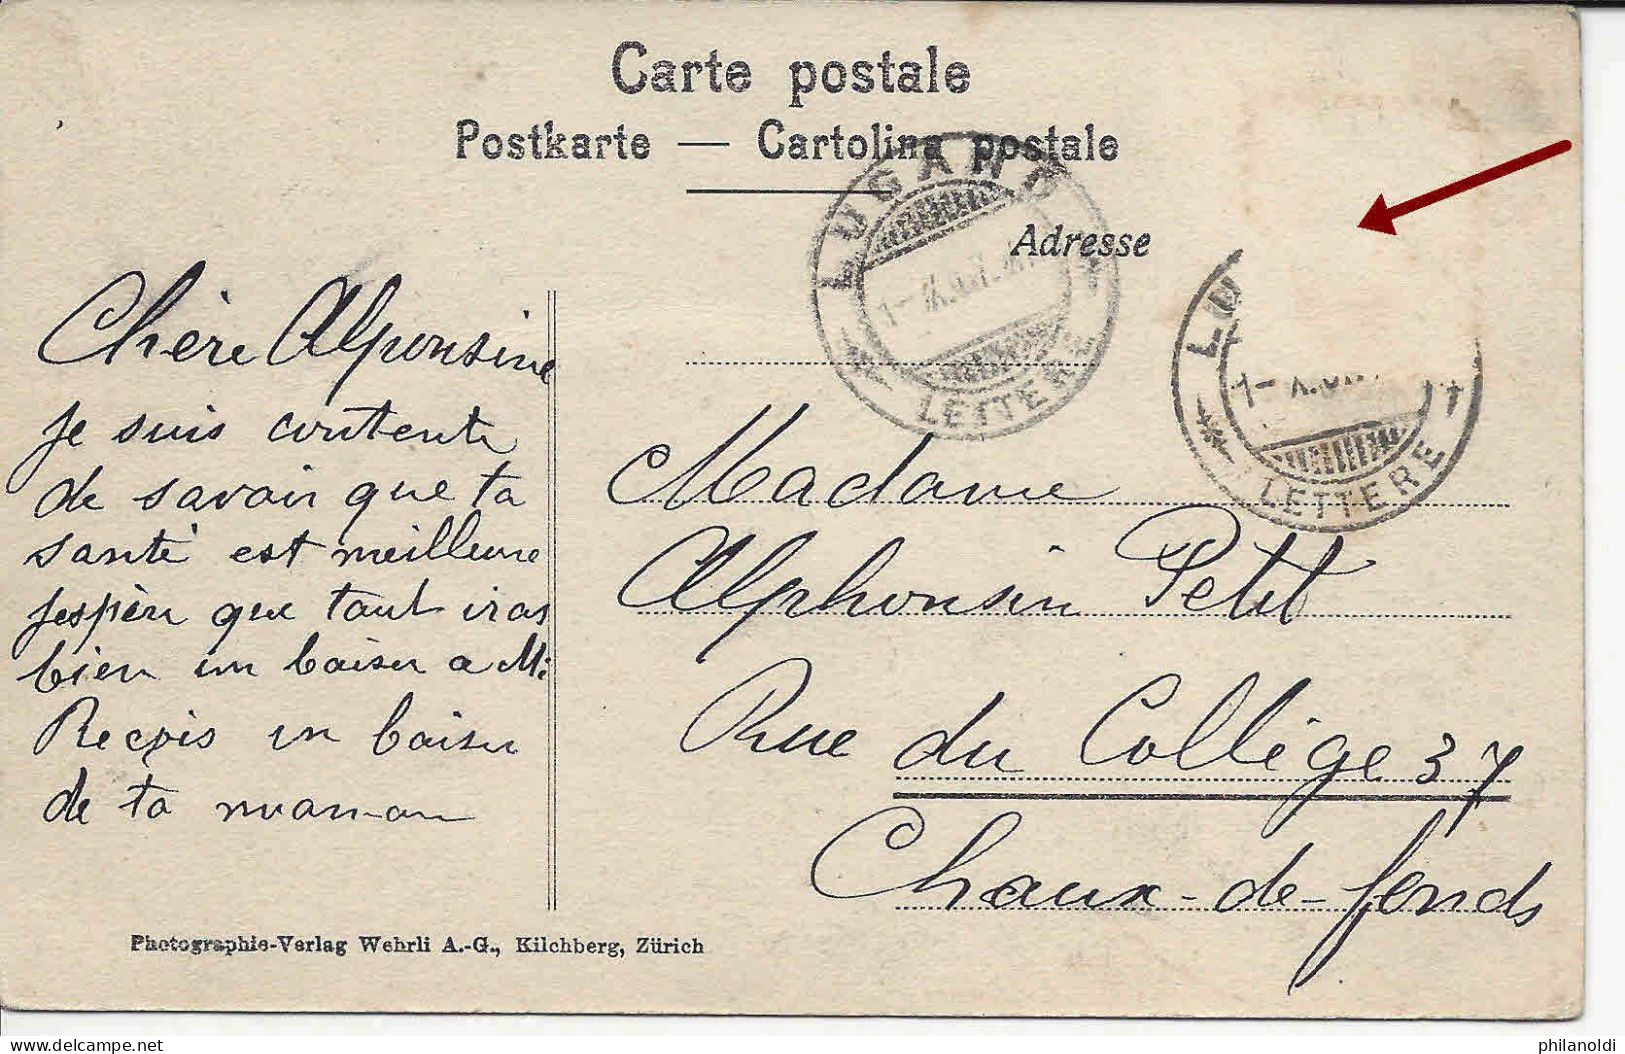 Carte postale
Postkarte — Cartolina postale
LUGANO
LETTERE
Adresse
LU
LETTERE
Chère Alponsine
je suis contente
de savoir que ta
santé est meilleure
jespère que tout iras
bien un baiser a
Reçois un baiser
de ta maman
Madame
Alphonsin Petit
Rue du Collège 37
Chaux-de-fonds
Photographie-Verlag Wehrli A.-G., Kilchberg, Zürich
philanoldi
delcampe.net